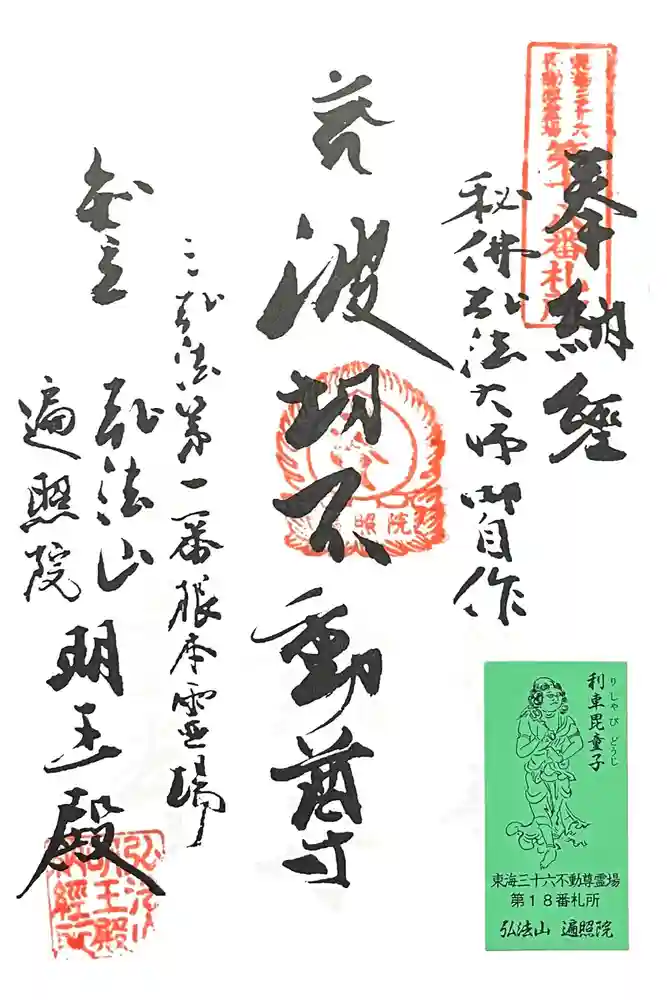 東海三十六
不動尊霊場
第十八番札所
奉納經
秘佛弘法大師御自作
波切不動尊
照院
三弘法第一番根本霊場
知立
弘法山
遍照院
明王殿
弘法山
明王殿
納經所
りしゃび どうじ
利車毘童子
東海三十六不動尊霊場
第18番札所
弘法山 遍照院